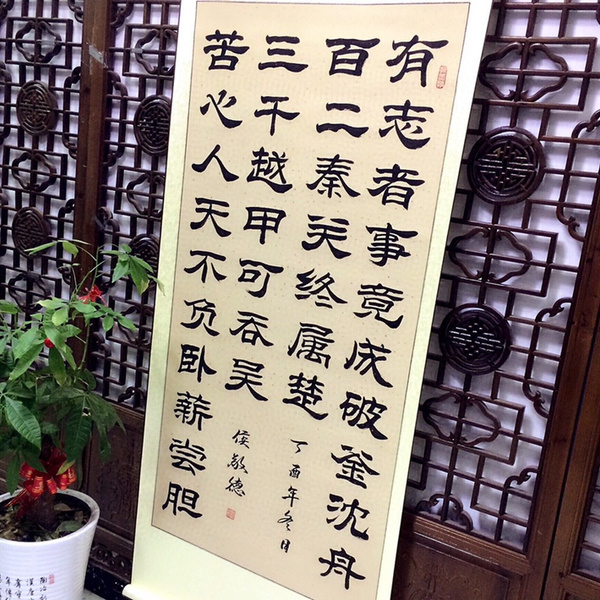 有志者事竟成破釜沈舟
百二秦关终属楚
苦心人天不负卧薪尝胆
三千越甲可吞吴
丁酉年冬月
侯敬德